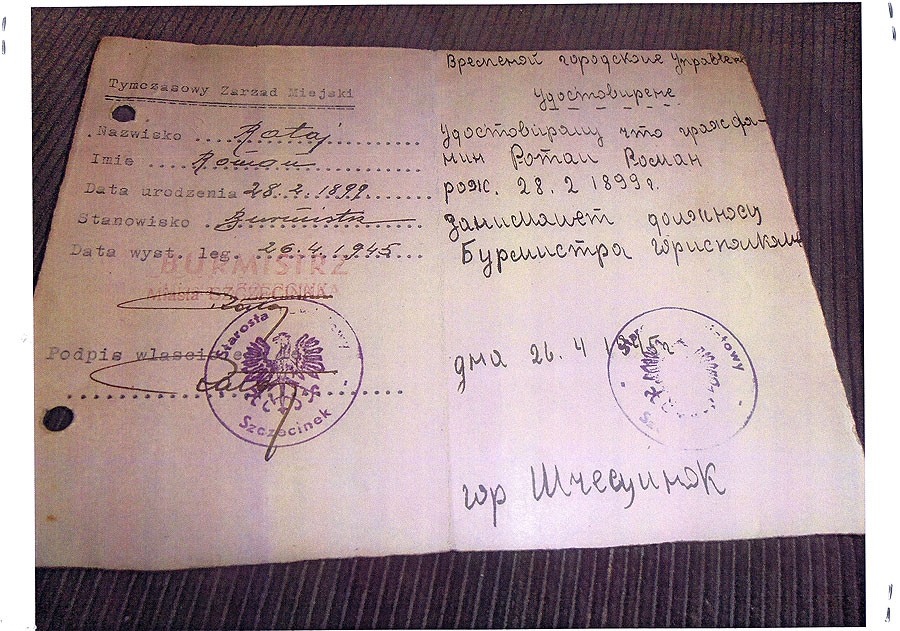 Tymczasowy Zarzad Miejski
Nazwisko ... Rataj
Imie .... Roman
Data urodzenia 28.2.1899.
Stanowisko .. Burmistrz
Data wyst. leg. 26.4.1945
BURMISTRZ
Miasta SZCZECINKA
Podpis wlasciciela
Starosta Powiatowy
Szczecinek
Временой городские Управлен
Удостовирене
Удостовираму что гражда-
нин Ротаи Роман
рож. 28.2 1899г.
должносу
Бурмистра
дна 26.4
Starosta Powiatowy
гор Шчесцинэк